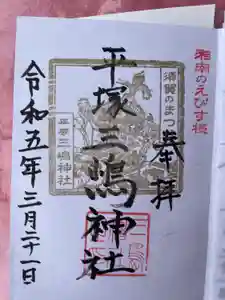 湘南のえびす様
奉拝
須賀のまつり
平塚三嶋神社
平塚三嶋神社
令和五年三月二十一日